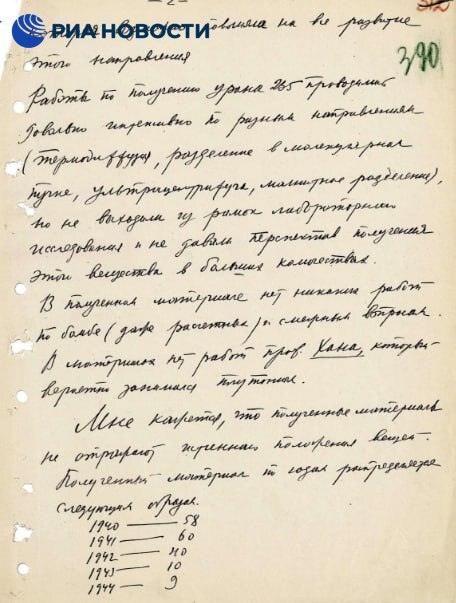 — 2 —
312
РИА НОВОСТИ
390
повлияла на все развитие
этого направления
Работы по получению урана 235 проводились
довольно интенсивно по разным направлениям
(термодиффузия, разделение в молекулярном
пучке, ультрацентрифуга, магнитное разделение),
но не выходили из рамок лабораторных
исследований и не давали перспектив получения
этого вещества в больших количествах.
В полученном материале нет никаких работ
по бомбе (даже расчетных) и смежным вопросам.
В материалах нет работ проф. Хана, который
вероятно занимался плутонием.
Мне кажется, что полученные материалы
не отражают истинного положения вещей.
Полученный материал по годам распределяется
следующим образом.
1940 — 58
1941 — 60
1942 — 40
1943 — 10
1944 — 9